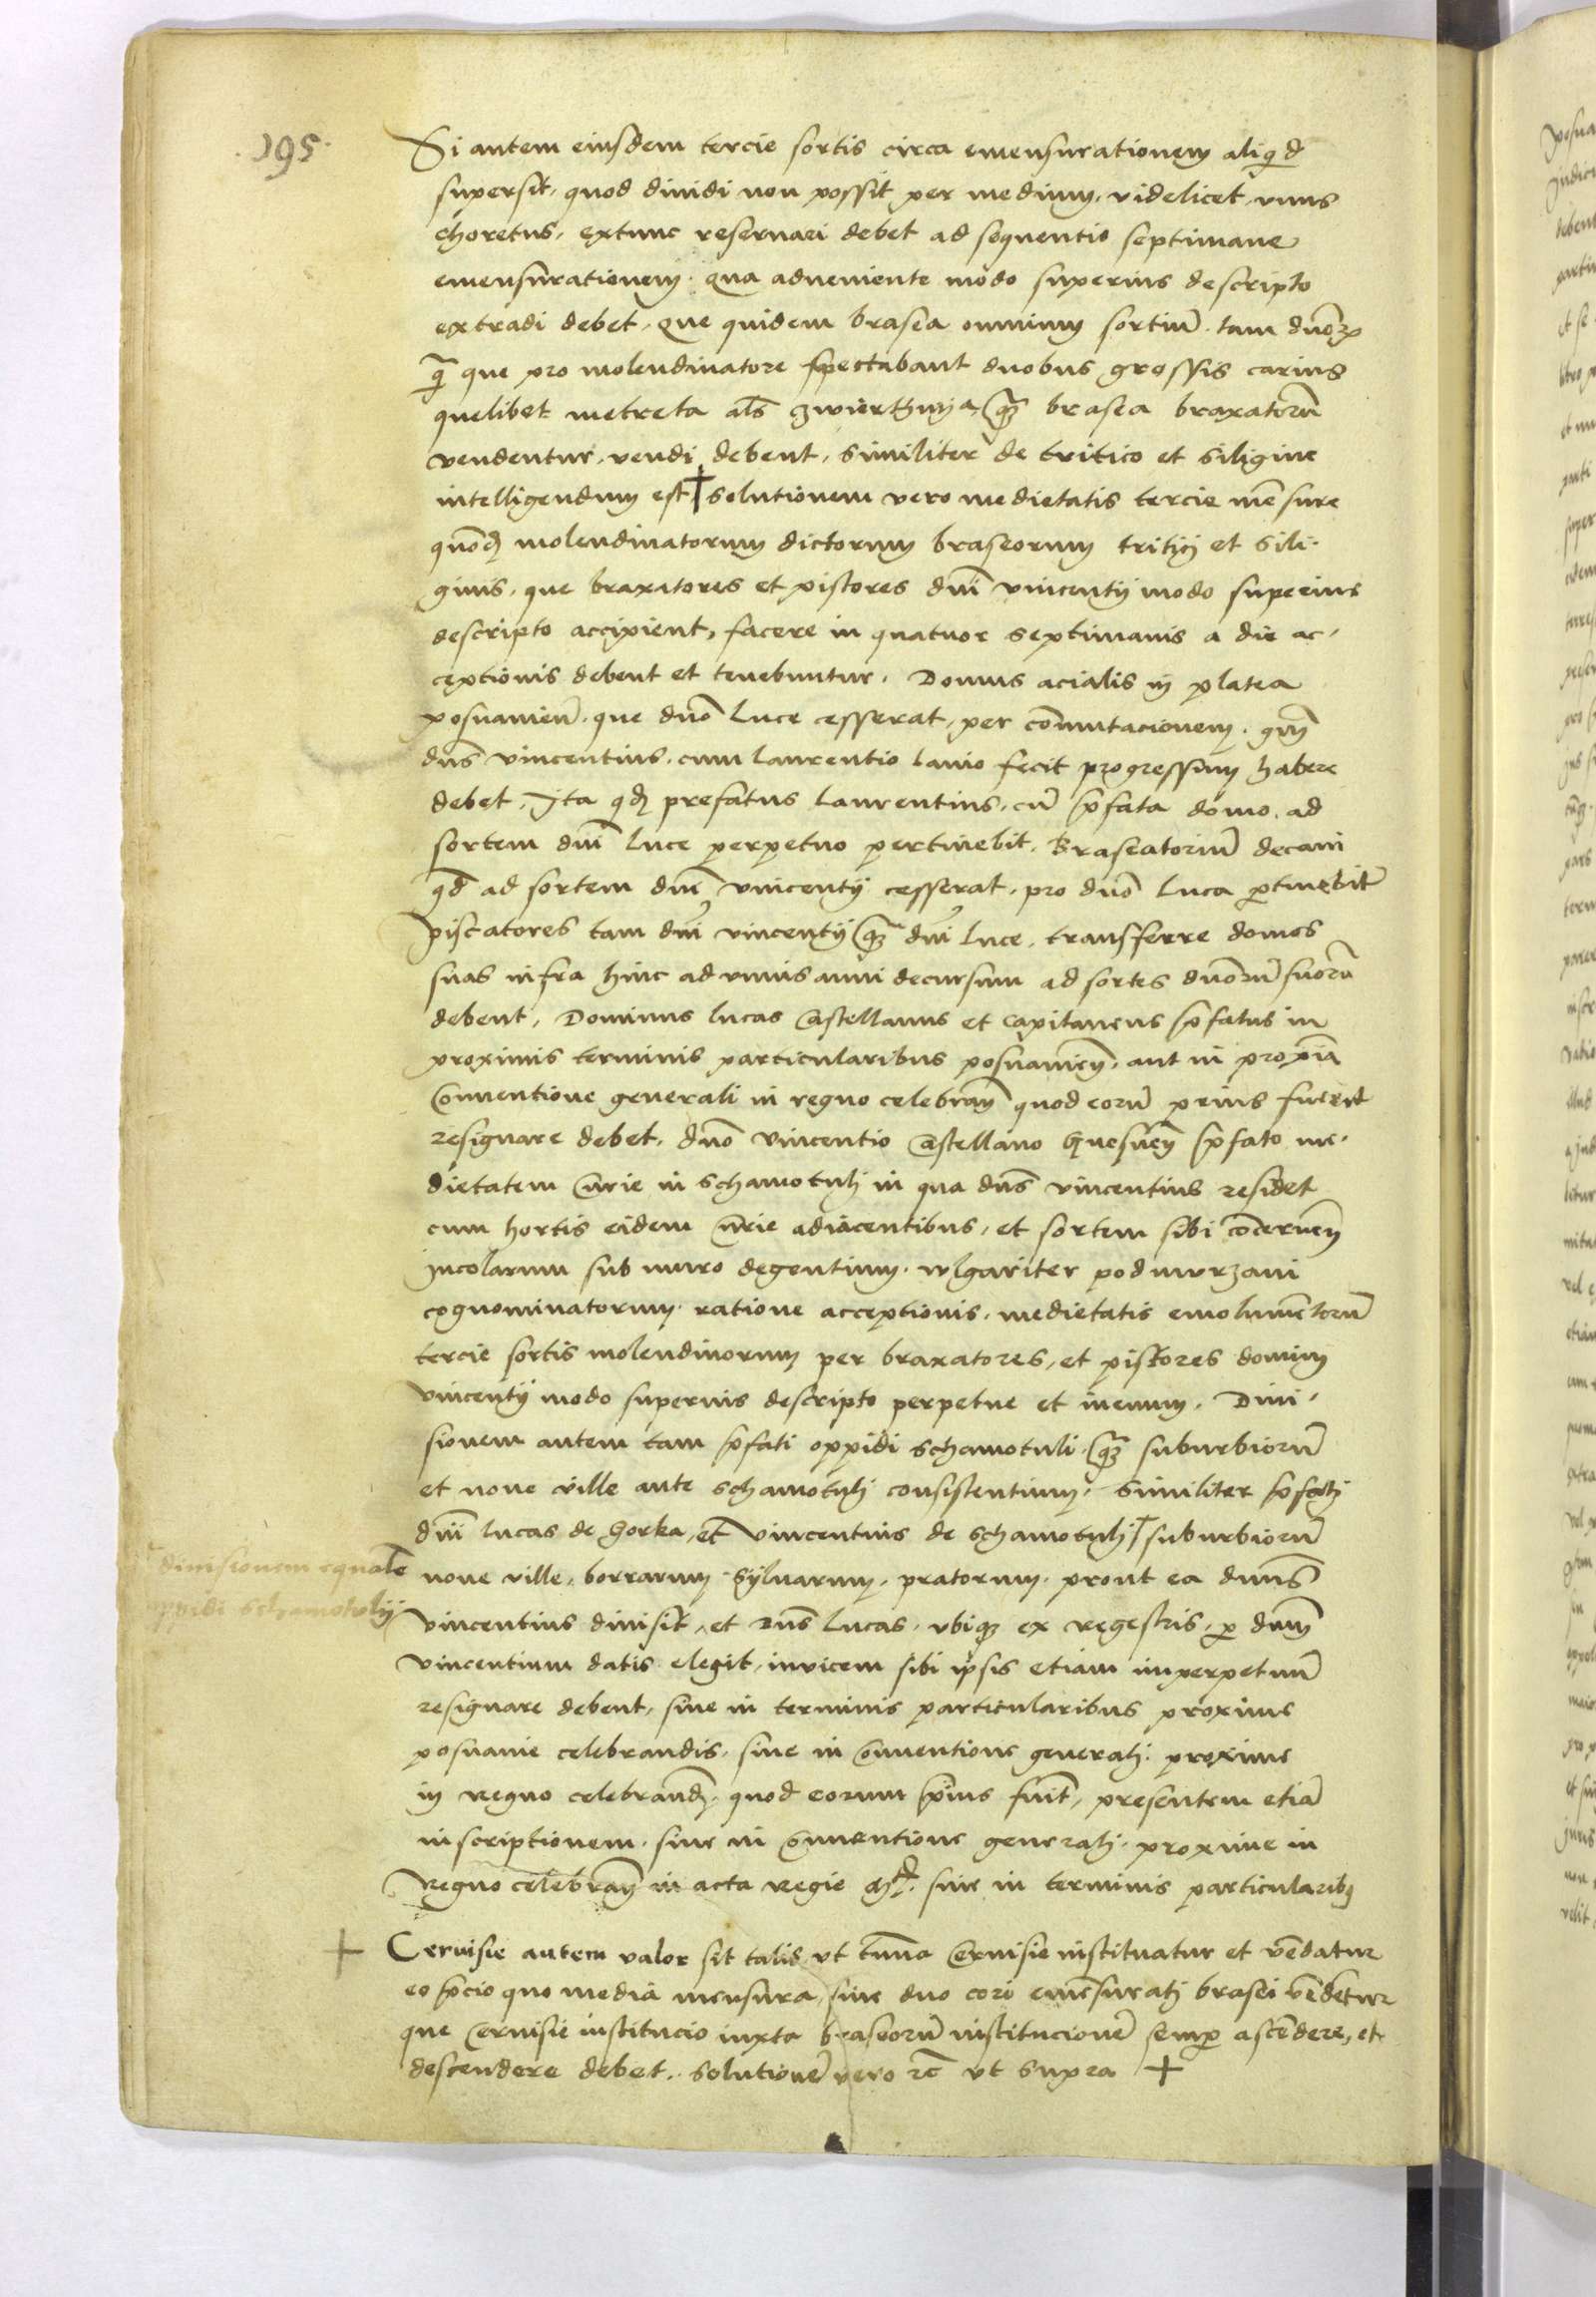 .195.
Si autem eiusdem tercie sortis circa emensurationem aliqd
supersit, quod diuidi non possit per medium, videlicet, vnus
choretus, extunc reseruari debet ad sequentis septimane
emensurationem. qua adueniente modo superius descripto
extradi debet, Que quidem brasea omnium sortiū. tam dnōꝝ
q̃ que pro molendinatore spectabant duobus grossis carius
quelibet metreta als̄ ꝫwierthnya, q̃ꝫ brasea braxatorū
vendentur, vendi debent, similiter de tritico et siligine
intelligendum est † solutionem vero medietatis tercie mēsure
quōdꝫ molendinatorum dictorum braseorum tritici et sili-
ginis, que braxatores et pistores dnī vincentij modo superius
descripto accipient, facere in quatuor septimanis a die ac-
ceptionis debent et tenebuntur. Domus acialis in platea
posnanieñ. que dnō Luce cesserat, per cōmutacionem. qm̄
dns̄ vincentius. cum Laurentio lanio fecit progressum habere
debet, Ita qdꝫ prefatus laurentius, cū p̄fata domo. ad
sortem dnī luce perpetuo pertinebit, Braseatoriū decani
qd̄ ad sortem dnī vincentij cesserat, pro dnō Luca ꝑtinebit
piscatores tam dnī vincentij q̃ꝫ dnī Luce, transferre domos
suas infra hinc ad vnius anni decursum ad sortes dnōrū suorū
debent, Dominus lucas Castellanus et capitaneus p̄fatus in
proximis terminis particularibus posnanieñ. aut in proxīa
Conuentione generali in regno celebrañ quod eorū prius fuerit
resignare debet, dnō vincentio Castellano Gnesneñ p̄fato me-
dietatem Curie in schamotuli in qua dns̄ vincentius residet
cum hortis eidem Curie adiacentibus, et sortem sibi cōcerneñ
Incolarum sub muro degentium. wlgariter podmurzani
cognominatorum ratione acceptionis, medietatis emolumētorū
tercie sortis molendinorum per braxatores, et pistores domini
vincentij modo superius descripto perpetue et ineuum, Diui-
sionem autem tam p̄fati oppidi schamotuli, q̃ꝫ suburbiorū
et noue ville ante schamotuli consistentium, similiter p̄fati
dnī lucas de Gorka, et vincentius de schamotuli † suburbiorū
diuisionem equalē
ppidi schamotulij
noue ville, borrarum syluarum, pratorum, prout ea dnns̄
vincentius diuisit, et Dns̄ Lucas, vbiqꝫ ex regestris, ꝑ dnm̄
vincentium datis elegit, invicem sibi ipsis etiam imperpetuū
resignare debent, siue in terminis particularibus proxime
posnanie celebrandis, siue in Conuentione generali. proxime
in regno celebrandꝫ, quod eorum p̄us fuit, presentem etiā
inscriptionem, siue in Conuentione generali. proxime in
Regno celebrañ in acta regie siue in terminis particularibꝫ
+ Ceruisie autem valor sit talis, vt tunna Ceruisie instituatur et vēdatur
eo p̄cio quo media mensura, siue duo cori emēsurati brasei vēdetur
que Ceruisie institucio iuxta braseorū institucionē semꝑ ascēdere, et
descendere debet. solutionē vero ꝛc̄ vt supra +